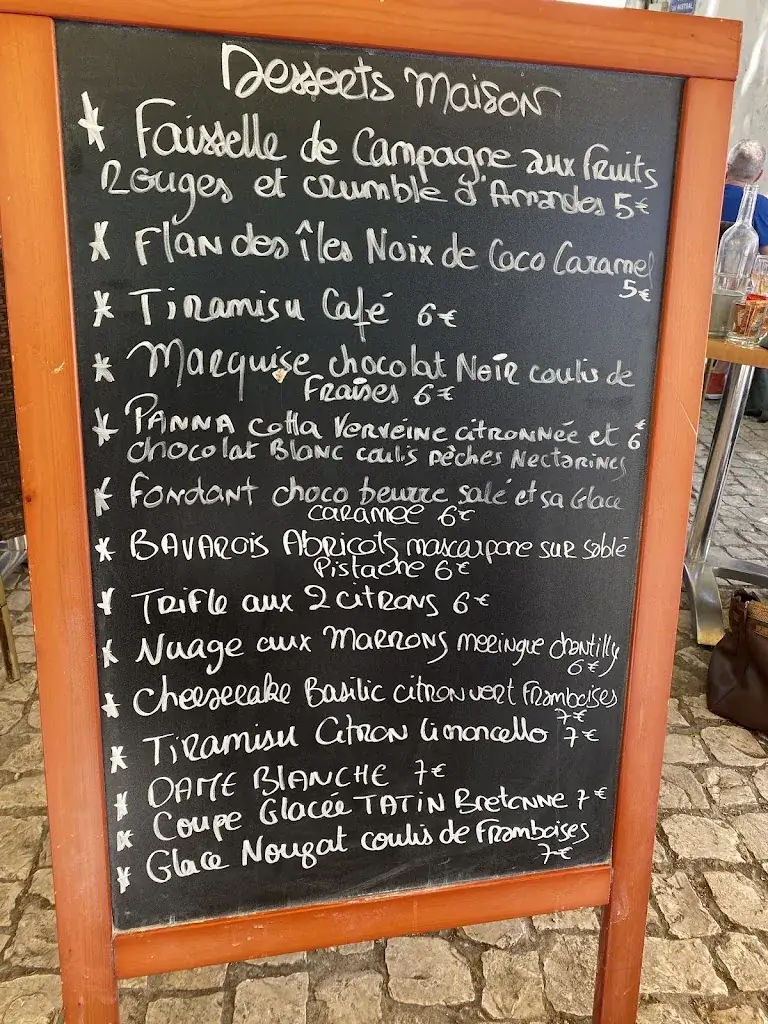 Desserts Maison
* Faisselle de Campagne aux fruits
Rouges et crumble d'Amandes 5€
* Flan des îles Noix de Coco Caramel
5€
* Tiramisu Café 6€
* Marquise chocolat Noir coulis de
Fraises 6€
* PANNA cotta Verveine citronnée et 6€
chocolat Blanc coulis pêches Nectarines
* Fondant choco beurre salé et sa Glace
caramel 6€
* BAVAROIS Abricots mascarpone sur sablé
Pistache 6€
* Trifle aux 2 citrons 6€
* Nuage aux MARRONS meringue chantilly
6€
* Cheesecake Basilic citron vert Framboises
7€
* Tiramisu Citron Limoncello 7€
* DAME BLANCHE 7€
* Coupe Glacée TATIN Bretonne 7€
* Glace Nougat coulis de Framboises
7€